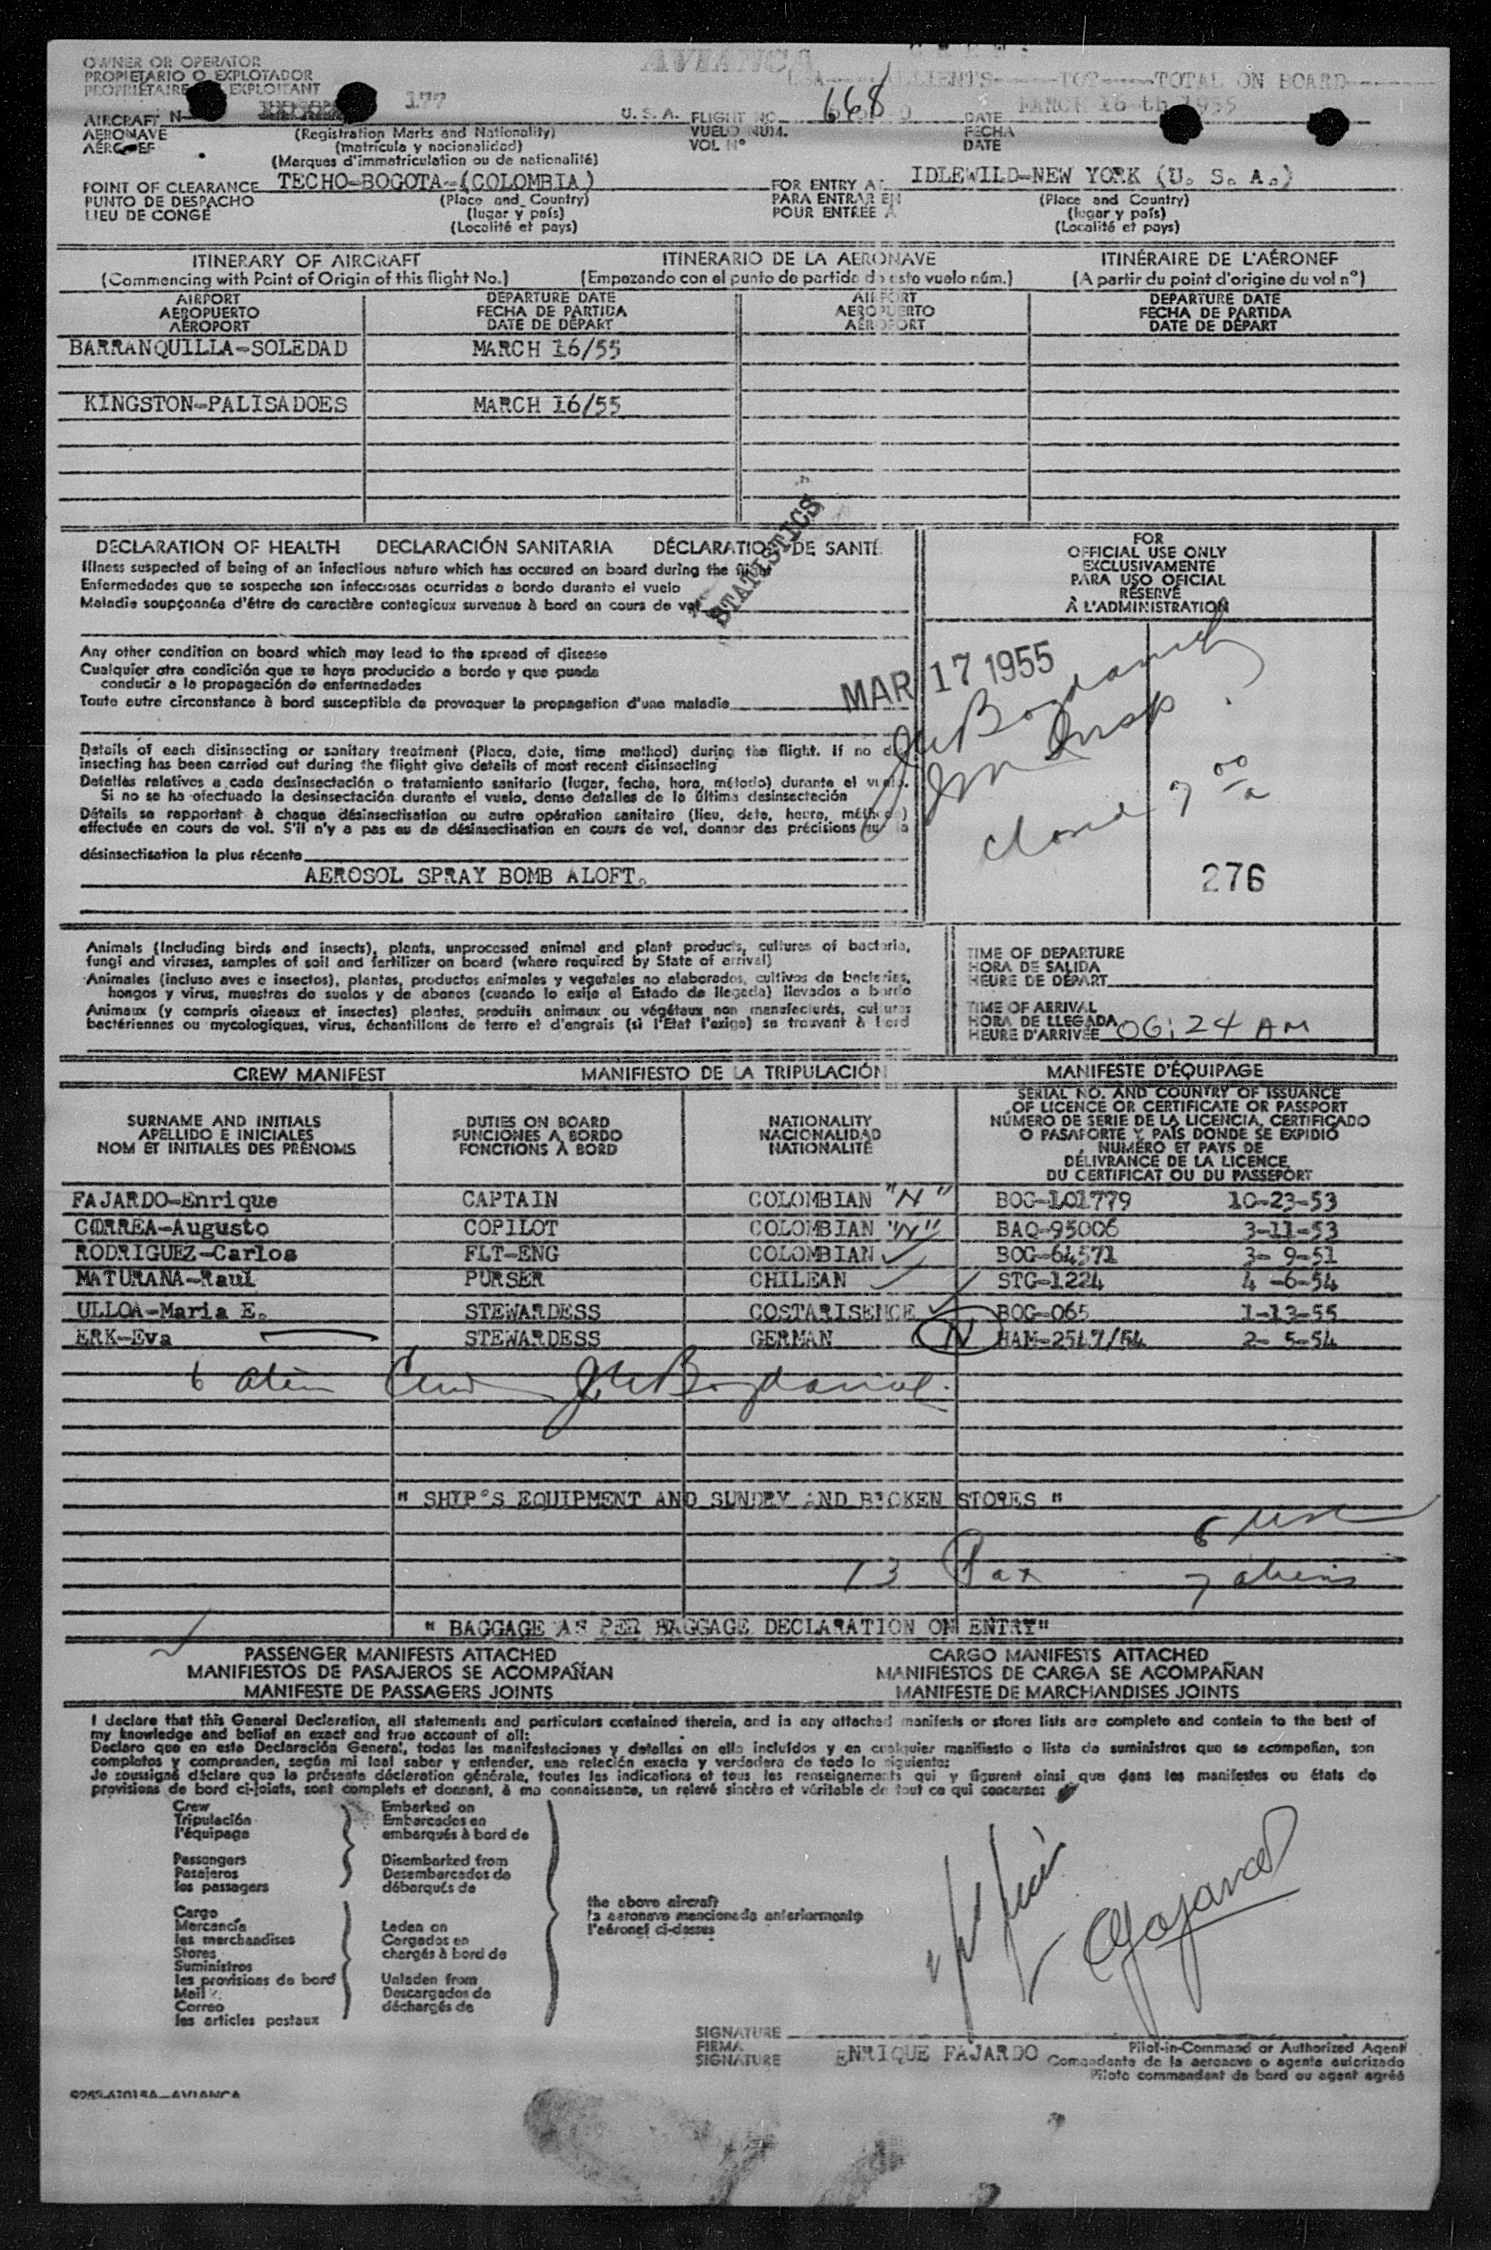 OWNER OR OPERATOR
PROPIETARIO O EXPLOTADOR
PROPRIÉTAIRE EXPLOITANT
AVIANCA
CLIENTS TOTAL ON BOARD
AIRCRAFT N- 177 U.S.A. FLIGHT NO 668 DATE MARCH 16 th 1955
AERONAVE (Registration Marks and Nationality) VUELO NUM. FECHA
(matricula y nacionalidad) VOL Nº DATE
(Marques d'immatriculation ou de nationalité)
POINT OF CLEARANCE TECHO-BOGOTA-(COLOMBIA) FOR ENTRY AT IDLEWILD-NEW YORK (U. S. A.)
PUNTO DE DESPACHO (Place and Country) PARA ENTRAR EN (Place and Country)
LIEU DE CONGÉ (lugar y país) POUR ENTRÉE A (lugar y país)
(Localité et pays) (Localité et pays)
ITINERARY OF AIRCRAFT ITINERARIO DE LA AERONAVE ITINÉRAIRE DE L'AÉRONEF
(Commencing with Point of Origin of this flight No.) (Empezando con el punto de partida de este vuelo núm.) (A partir du point d'origine du vol nº)
AIRPORT DEPARTURE DATE AIRPORT DEPARTURE DATE
AEROPUERTO FECHA DE PARTIDA AEROPUERTO FECHA DE PARTIDA
AÉROPORT DATE DE DÉPART AÉROPORT DATE DE DÉPART
BARRANQUILLA-SOLEDAD MARCH 16/55
KINGSTON-PALISADOES MARCH 16/55
STATISTICS
DECLARATION OF HEALTH DECLARACIÓN SANITARIA DÉCLARATION DE SANTÉ
Illness suspected of being of an infectious nature which has occured on board during the flight
Enfermedades que se sospecha son infecciosas ocurridas a bordo durante el vuelo
Maladie soupçonnée d'être de caractère contagieux survenue à bord en cours de vol
Any other condition on board which may lead to the spread of disease
Cualquier otra condición que se haya producido a bordo y que pueda
conducir a la propagación de enfermedades
Toute autre circonstance à bord susceptible de provoquer la propagation d'une maladie
Details of each disinsecting or sanitary treatment (Place, date, time method) during the flight. If no dis-
insecting has been carried out during the flight give details of most recent disinsecting
Detalles relativos a cada desinsectación o tratamiento sanitario (lugar, fecha, hora, método) durante el vuelo.
Si no se ha efectuado la desinsectación durante el vuelo, dense detalles de la última desinsectación
Détails se rapportant à chaque désinsectisation ou autre opération sanitaire (lieu, date, heure, méthode)
effectuée en cours de vol. S'il n'y a pas eu de désinsectisation en cours de vol, donner des précisions sur la
désinsectisation la plus récente
AEROSOL SPRAY BOMB ALOFT.
FOR
OFFICIAL USE ONLY
EXCLUSIVAMENTE
PARA USO OFICIAL
RÉSERVÉ
À L'ADMINISTRATION
MAR 17 1955
Insp
closed 7 00 a
276
Animals (Including birds and insects), plants, unprocessed animal and plant products, cultures of bacteria,
fungi and viruses, samples of soil and fertilizer on board (where required by State of arrival)
Animales (incluso aves e insectos), plantas, productos animales y vegetales no elaborados, cultivos de bacterias,
hongos y virus, muestras de suelos y de abonos (cuando lo exija el Estado de llegada) llevados a bordo
Animaux (y compris oiseaux et insectes) plantes, produits animaux ou végétaux non manufacturés, cultures
bactériennes ou mycologiques, virus, échantillons de terre et d'engrais (si l'Etat l'exige) se trouvant à bord
TIME OF DEPARTURE
HORA DE SALIDA
HEURE DE DÉPART
TIME OF ARRIVAL
HORA DE LLEGADA
HEURE D'ARRIVÉE 06:24 AM
CREW MANIFEST MANIFIESTO DE LA TRIPULACIÓN MANIFESTE D'ÉQUIPAGE
SURNAME AND INITIALS
APELLIDO E INICIALES
NOM ET INITIALES DES PRÉNOMS
DUTIES ON BOARD
FUNCIONES A BORDO
FONCTIONS À BORD
NATIONALITY
NACIONALIDAD
NATIONALITÉ
SERIAL NO. AND COUNTRY OF ISSUANCE
OF LICENCE OR CERTIFICATE OR PASSPORT
NÚMERO DE SERIE DE LA LICENCIA, CERTIFICADO
O PASAPORTE Y PAÍS DONDE SE EXPIDIÓ
NUMÉRO ET PAYS DE
DÉLIVRANCE DE LA LICENCE
DU CERTIFICAT OU DU PASSEPORT
FAJARDO-Enrique CAPTAIN COLOMBIAN "N" BOG-101779 10-23-53
CORREA-Augusto COPILOT COLOMBIAN "N" BAQ-95006 3-11-53
RODRIGUEZ-Carlos FLT-ENG COLOMBIAN BOG-64571 3- 9-51
MATURANA-Raul PURSER CHILEAN STG-1224 4 -6-54
ULLOA-Maria E. STEWARDESS COSTARISENCE BOG-065 1-13-55
ERK-Eva STEWARDESS GERMAN N HAM-2547/54 2- 5-54
6 alien Crew
" SHIP'S EQUIPMENT AND SUNDRY AND BROKEN STORES "
13 Pax
7 aliens
" BAGGAGE AS PER BAGGAGE DECLARATION ON ENTRY"
PASSENGER MANIFESTS ATTACHED CARGO MANIFESTS ATTACHED
MANIFIESTOS DE PASAJEROS SE ACOMPAÑAN MANIFIESTOS DE CARGA SE ACOMPAÑAN
MANIFESTE DE PASSAGERS JOINTS MANIFESTE DE MARCHANDISES JOINTS
I declare that this General Declaration, all statements and particulars contained therein, and in any attached manifests or stores lists are complete and contein to the best of
my knowledge and belief an exact and true account of all:
Declaro que en esta Declaración General, todas las manifestaciones y detalles en ella incluídos y en cualquier manifiesto o lista de suministros que se acompañan, son
completos y comprenden, según mi leal saber y entender, una relación exacta y verdadera de todo lo siguiente:
Je soussigné déclare que la présente déclaration générale, toutes les indications et tous les renseignements qui y figurent ainsi que dans les manifestes ou états de
provisions de bord ci-joints, sont complets et donnent, à ma connaissance, un relevé sincère et véritable de tout ce qui concerne:
Crew
Tripulación
l'équipage
Passengers
Pasajeros
les passagers
Cargo
Mercancía
les marchandises
Stores
Suministros
les provisions de bord
Mail
Correo
les articles postaux
Embarked on
Embarcados en
embarqués à bord de
Disembarked from
Desembarcados de
débarqués de
Laden on
Cargados en
chargés à bord de
Unladen from
Descargados de
déchargés de
the above aircraft
la aeronave mencionada anteriormente
l'aéronef ci-dessus
SIGNATURE
FIRMA
SIGNATURE
ENRIQUE FAJARDO
Pilot-in-Command or Authorized Agent
Comandante de la aeronave o agente autorizado
Pilote commandant de bord ou agent agréé